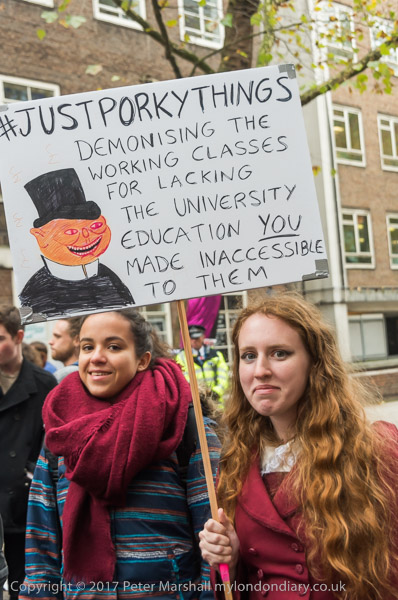 #JUSTPORKYTHINGS
DEMONISING THE
WORKING CLASSES
FOR LACKING
THE UNIVERSITY
EDUCATION YOU
MADE INACCESSIBLE
TO THEM
Copyright © 2017 Peter Marshall mylondondiary.co.uk